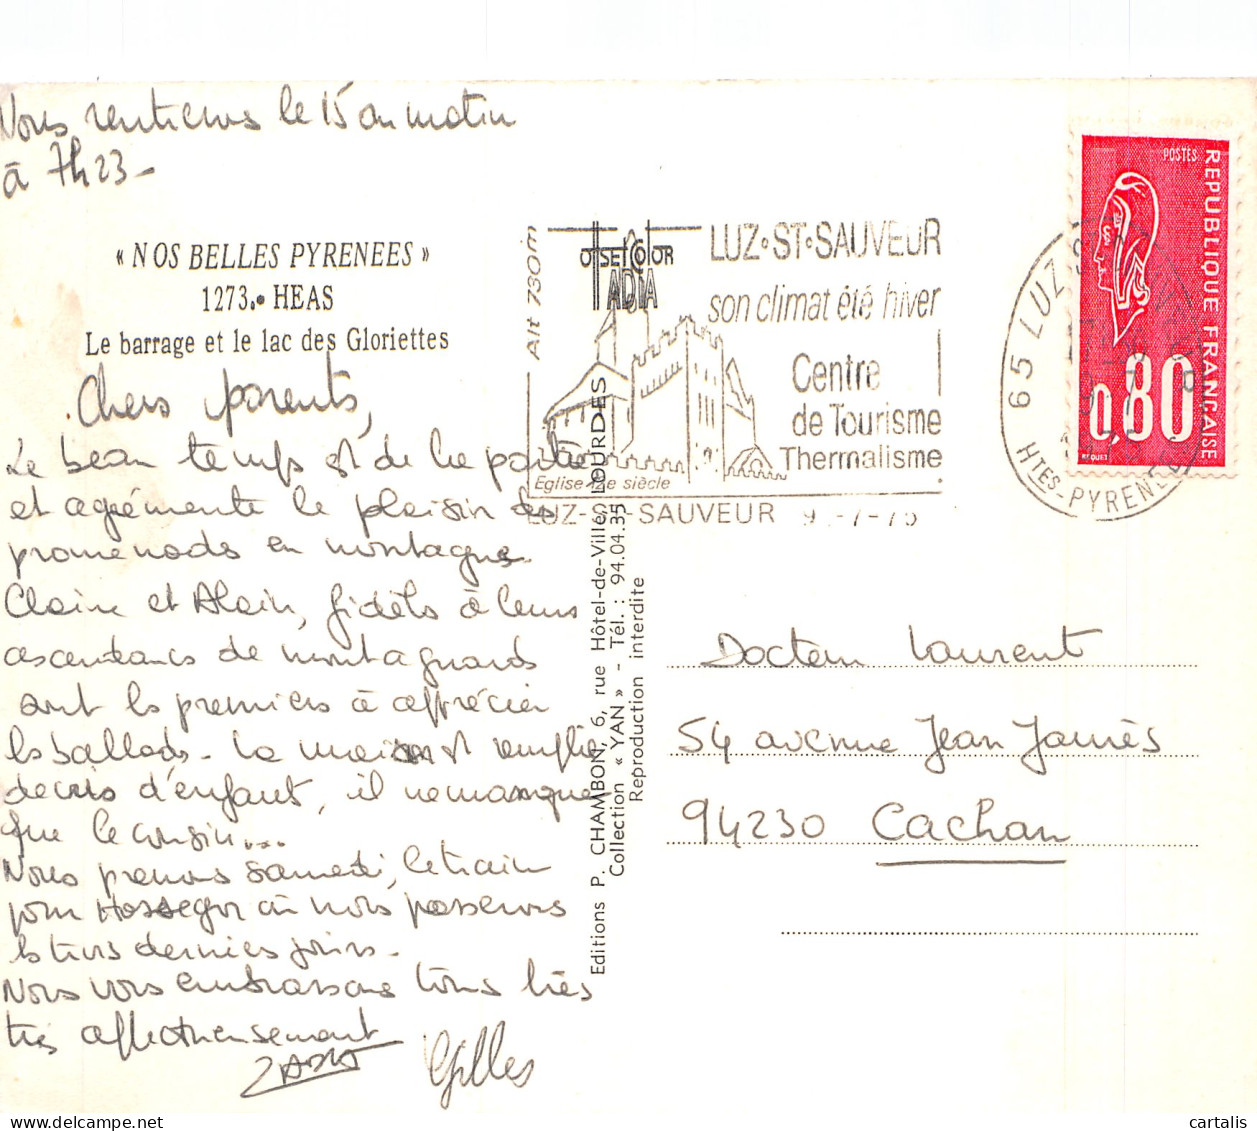 Nous rentrerons le 15 au matin
à 7h23-
« NOS BELLES PYRENEES »
1273.• HEAS
Le barrage et le lac des Gloriettes
Chers parents,
Le beau temps est de la partie
et agrémente le plaisir des
promenades en montagne.
Claire et Alain, fidèles à leurs
ascendances de montagnards
sont les premiers à apprécier
les ballades. La maison est remplie
de cris d'enfant, il ne manque
que le cousin...
Nous prenons samedi, le train
pour Hossegor où nous passerons
les trois derniers jours.
Nous vous embrassons tous très
très affectueusement
Gilles
Alt 730m
OffsetColor
IADIA
LUZ•ST•SAUVEUR
son climat été hiver
Centre
de Tourisme
Thermalisme
Eglise 12e siècle
LUZ-ST-SAUVEUR 9 -7-75
Editions P. CHAMBON, 6, rue Hôtel-de-Ville, LOURDES
Collection « YAN » - Tél. : 94.04.35
Reproduction interdite
65 LUZ-ST-
HTES-PYRENEES
POSTES
REPUBLIQUE FRANÇAISE
0,80
BEQUET
Docteur Laurent
54 avenue Jean Jaurès
94230 Cachan
cartalis